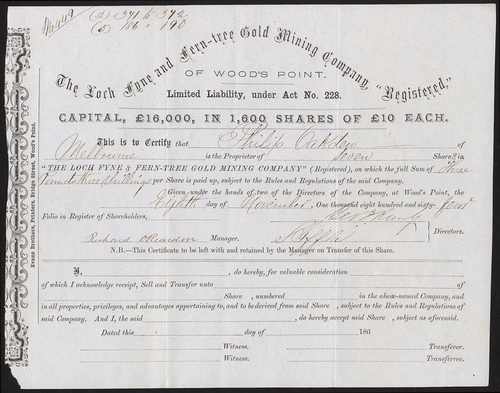 (2) 371 to 372
(5) 186 " 190
The Loch Fyne and Fern-tree Gold Mining Company, "Registered,"
OF WOOD'S POINT.
Limited Liability, under Act No. 228.
CAPITAL, £16,000, IN 1,600 SHARES OF £10 EACH.
This is to Certify that Philip Oakden of
Melbourne is the Proprietor of Seven Shares in
"THE LOCH FYNE & FERN-TREE GOLD MINING COMPANY" (Registered), on which the full Sum of Three
Pounds three shillings per Share is paid up, subject to the Rules and Regulations of the said Company.
Given under the hands of two of the Directors of the Company, at Wood's Point, the
Eighth day of November, One thousand eight hundred and sixty-four
Folio in Register of Shareholders,
Directors.
Richard O'Reardon Manager.
N.B.—This Certificate to be left with and retained by the Manager on Transfer of this Share.
I, , do hereby, for valuable consideration
of which I acknowledge receipt, Sell and Transfer unto of
Share , numbered in the above-named Company, and
in all properties, privileges, and advantages appertaining to, and to be derived from said Share , subject to the Rules and Regulations of
said Company. And I, the said , do hereby accept said Share , subject as aforesaid.
Dated this day of 186
Witness. Transferor.
Witness. Transferree.
Evans Brothers, Printers, Bridge Street, Wood's Point.